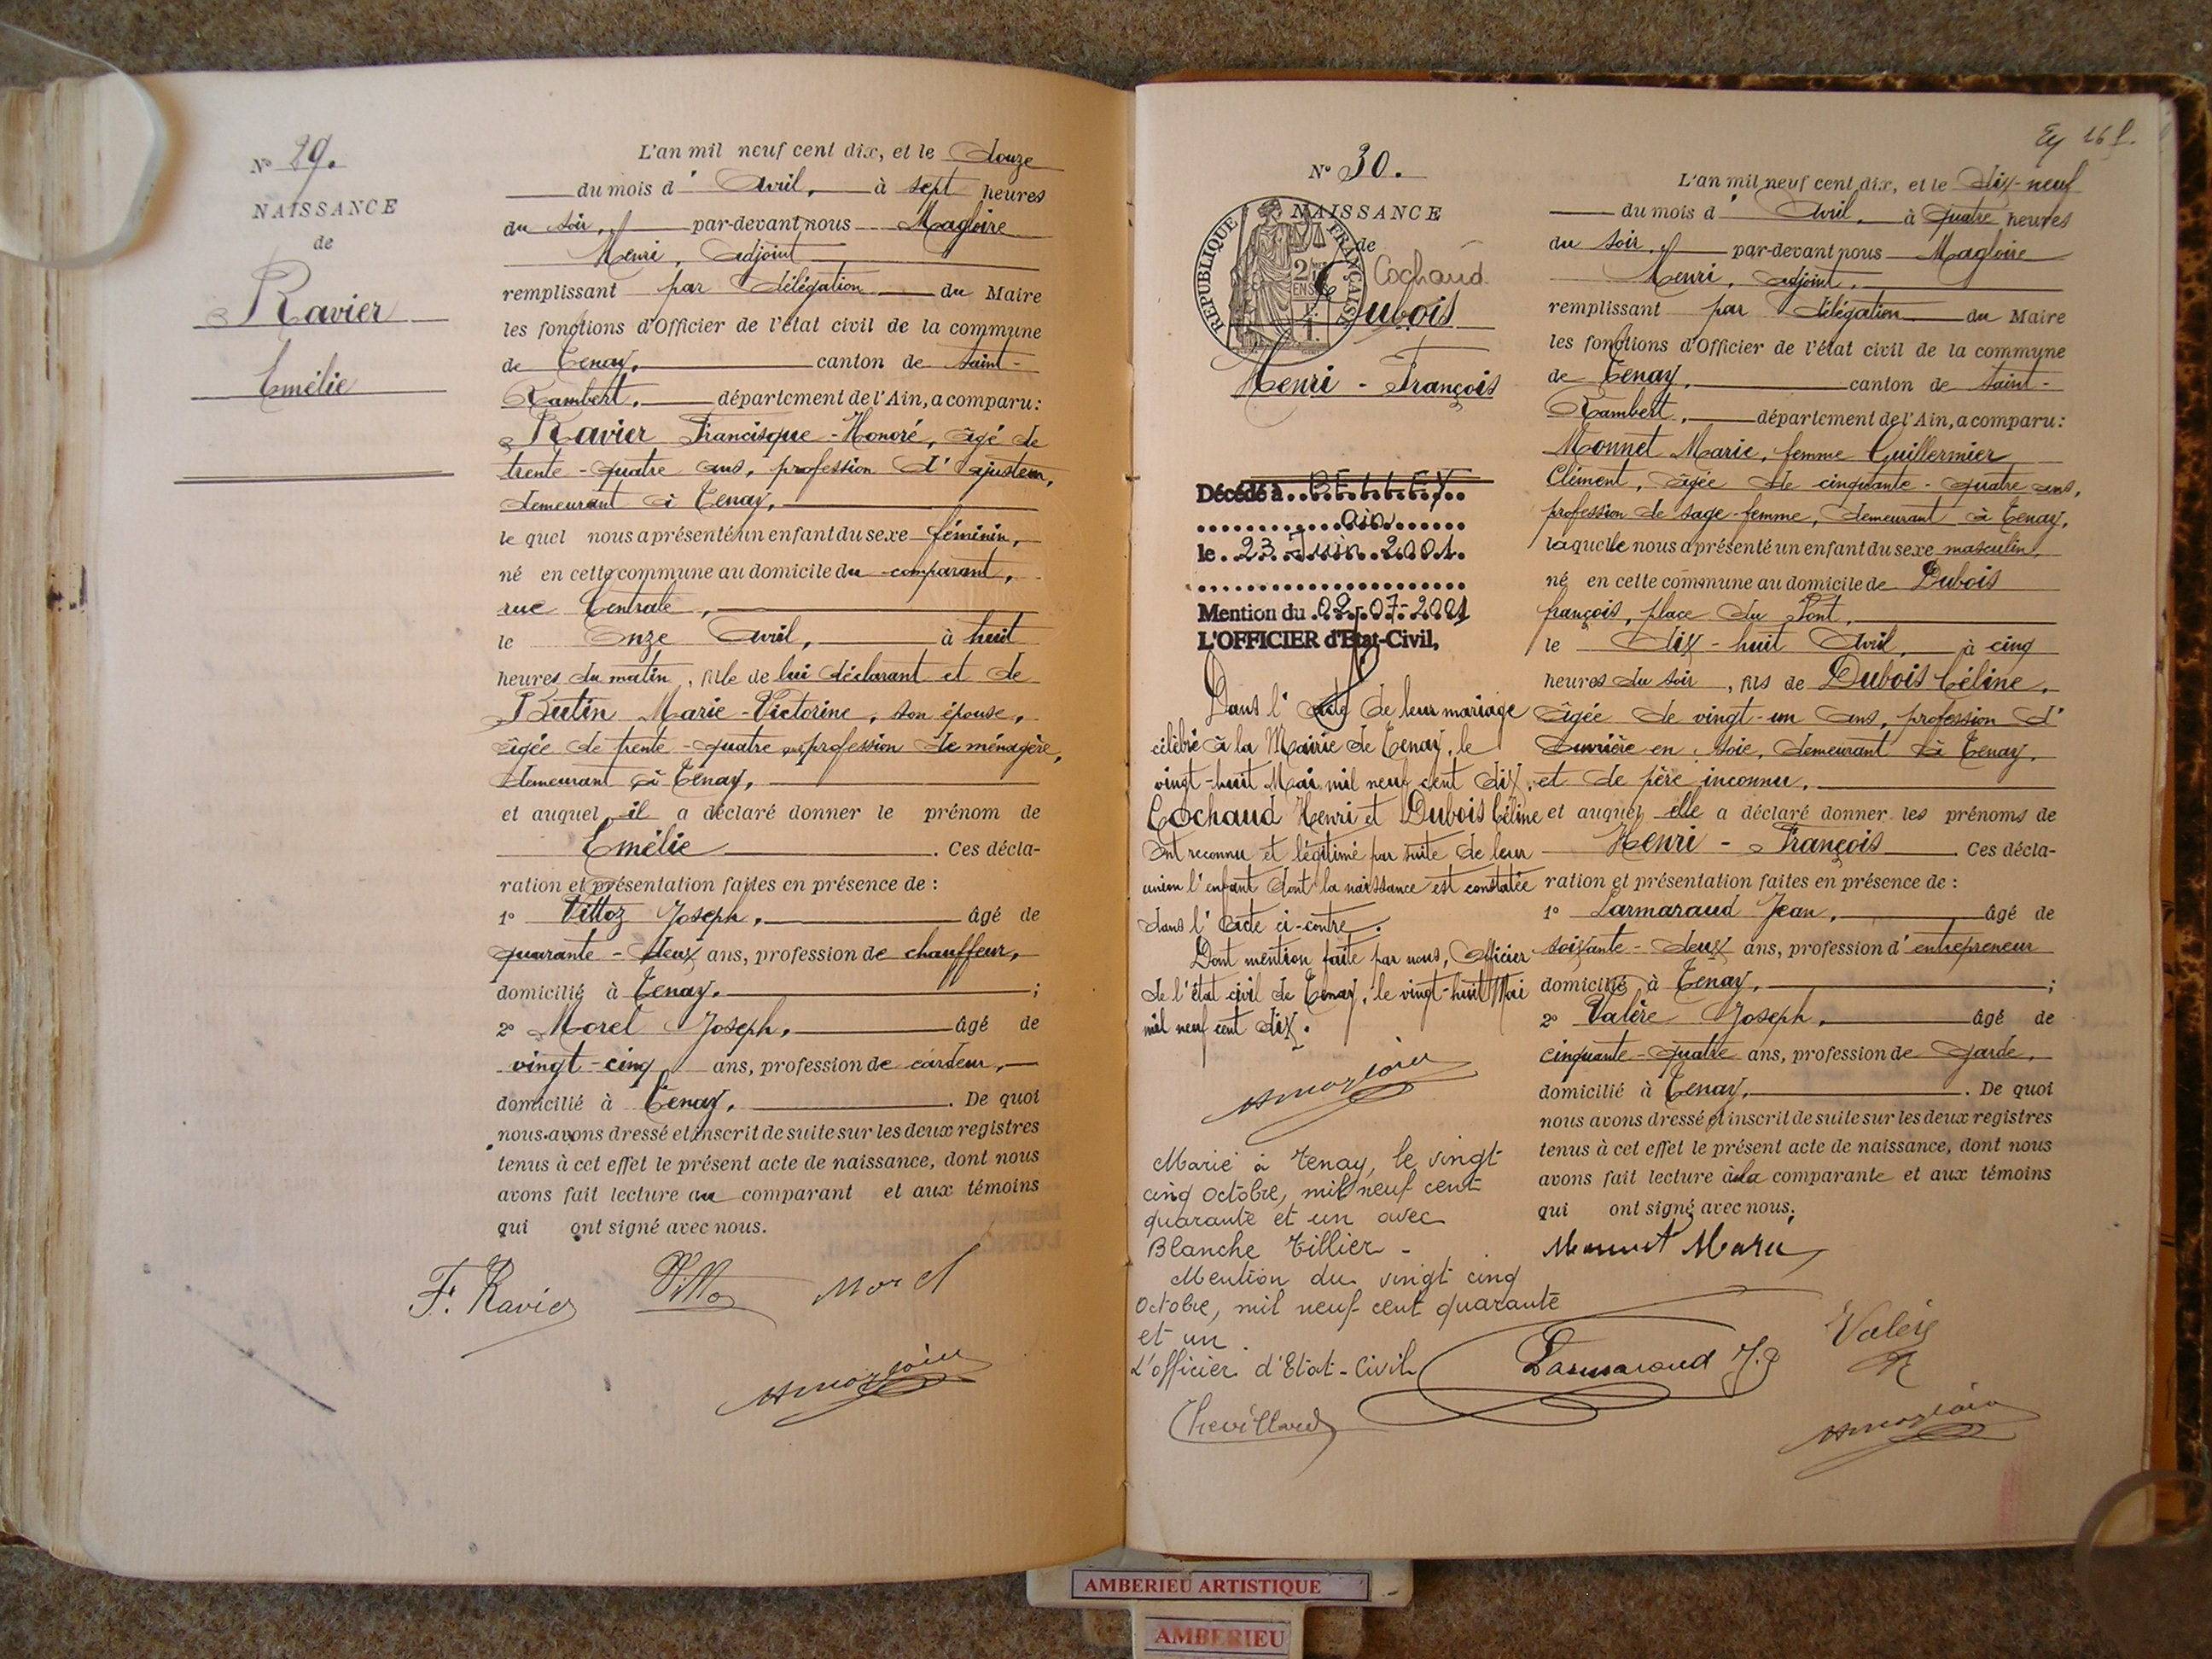 N° 29.
NAISSANCE
de
Ravier
Emélie
L'an mil neuf cent dix, et le douze
du mois d' Avril, à sept heures
du soir, par-devant nous Magloire
Henri, adjoint
remplissant par délégation du Maire
les fonctions d'Officier de l'état civil de la commune
de Tenay, canton de Saint-
Rambert, département de l'Ain, a comparu:
Ravier Francisque-Honoré, âgé de
trente-quatre ans, profession d'ajusteur,
demeurant à Tenay,
le quel nous a présenté un enfant du sexe féminin,
né en cette commune au domicile du comparant,
rue Centrale,
le Onze Avril, à huit
heures du matin, fille de lui déclarant et de
Butin Marie-Victorine, son épouse,
âgée de trente-quatre ans, profession de ménagère,
demeurant à Tenay,
et auquel il a déclaré donner le prénom de
Emélie. Ces décla-
ration et présentation faites en présence de :
1° Vittoz Joseph, âgé de
quarante-deux ans, profession de chauffeur,
domicilié à Tenay. ;
2° Morel Joseph, âgé de
vingt-cinq ans, profession de cardeur,
domicilié à Tenay. De quoi
nous avons dressé et inscrit de suite sur les deux registres
tenus à cet effet le présent acte de naissance, dont nous
avons fait lecture au comparant et aux témoins
qui ont signé avec nous.
F. Ravier Vittoz Morel
H Magloire
N° 30.
NAISSANCE
de
RÉPUBLIQUE FRANÇAISE
Cochaud
Dubois
Henri-François
Décédé à BELLEY
Ain
le 23 Juin 2001.
Mention du 02-07-2001
L'OFFICIER d'Etat-Civil,
Dans l'acte de leur mariage
célébré à la Mairie de Tenay, le
vingt-huit Mai mil neuf cent dix,
Cochaud Henri et Dubois Céline
ont reconnu et légitimé par suite de leur
union l'enfant dont la naissance est constatée
dans l'acte ci-contre.
Dont mention faite par nous, Officier
de l'état civil de Tenay, le vingt-huit Mai
mil neuf cent dix.
H Magloire
Marié à Tenay, le vingt
cinq octobre, mil neuf cent
quarante et un avec
Blanche Tillier -
Mention du vingt cinq
octobre, mil neuf cent quarante
et un.
L'officier d'Etat-Civil
Chevillard
L'an mil neuf cent dix, et le dix-neuf
du mois d' Avril, à quatre heures
du soir, par-devant nous Magloire
Henri, adjoint,
remplissant par délégation du Maire
les fonctions d'Officier de l'état civil de la commune
de Tenay, canton de Saint-
Rambert, département de l'Ain, a comparu:
Monnet Marie, femme Guillermier
Clément, âgée de cinquante-quatre ans,
profession de sage-femme, demeurant à Tenay,
laquelle nous a présenté un enfant du sexe masculin,
né en cette commune au domicile de Dubois
françois, place du Pont,
le dix-huit Avril, à cinq
heures du soir, fils de Dubois Céline,
âgée de vingt-un ans, profession d'
ouvrière en soie, demeurant à Tenay,
et de père inconnu,
et auquel elle a déclaré donner les prénoms de
Henri-François. Ces décla-
ration et présentation faites en présence de :
1° Larmaraud Jean, âgé de
soixante-deux ans, profession d'entrepreneur
domicilié à Tenay, ;
2° Valère Joseph, âgé de
cinquante-quatre ans, profession de garde,
domicilié à Tenay, De quoi
nous avons dressé et inscrit de suite sur les deux registres
tenus à cet effet le présent acte de naissance, dont nous
avons fait lecture à la comparante et aux témoins
qui ont signé avec nous.
Monnet Marie
Larmaraud J. Valère
H Magloire
AMBERIEU ARTISTIQUE
AMBERIEU